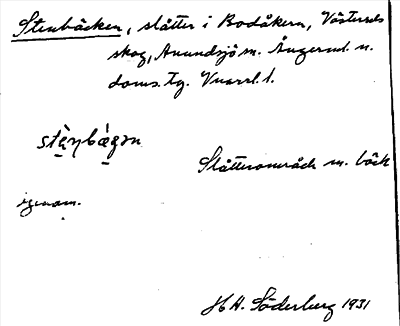 Stenbäcken, slåtter i Bodåkern, Västerås
skog, Anundsjö sn. Ångerml. n.
doms. tg. Vnorrl. l.
stὲ̀ṇbǽgən
Slåtterområde m. bäck
igenom.
H H. Söderberg 1931